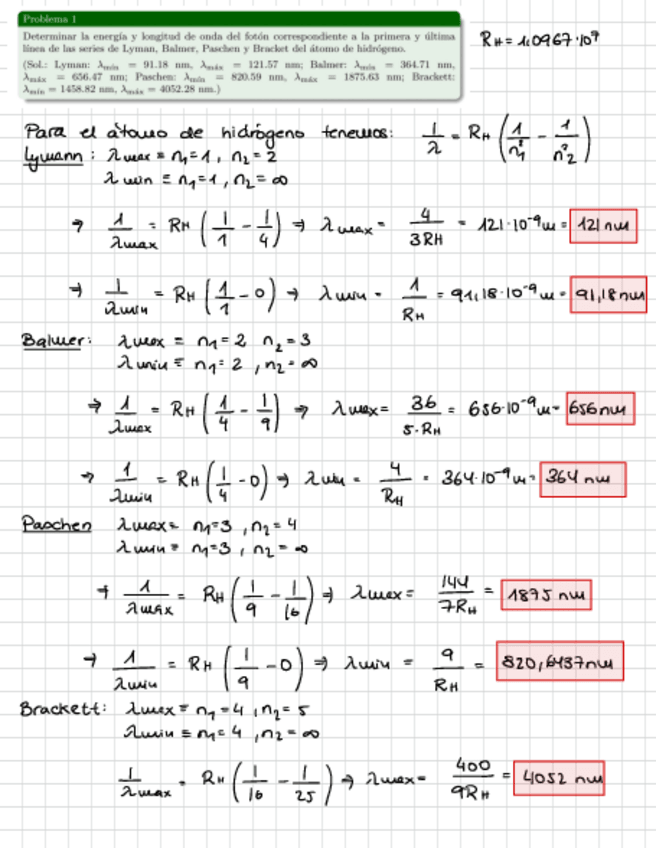 Problema 1
Determinar la energía y longitud de onda del fotón correspondiente a la primera y última
línea de las series de Lyman, Balmer, Paschen y Bracket del átomo de hidrógeno.
(Sol.: Lyman: λmín = 91.18 nm, λmáx = 121.57 nm; Balmer: λmín = 364.71 nm,
λmáx = 656.47 nm; Paschen: λmín = 820.59 nm, λmáx = 1875.63 nm; Brackett:
λmín = 1458.82 nm, λmáx = 4052.28 nm.)
RH = 1,0967·10⁷
Para el átomo de hidrógeno tenemos: 1/λ = RH (1/n₁² - 1/n₂²)
Lymann : λmax ≡ n₁=1, n₂=2
λmin ≡ n₁=1, n₂=∞
→ 1/λmax = RH (1/1 - 1/4) ⇒ λmax = 4/3RH = 121·10⁻⁹m = 121 nm
→ 1/λmin = RH (1/1 - 0) → λmin = 1/RH = 91,18·10⁻⁹m = 91,18nm
Balmer: λmax = n₁=2 n₂=3
λmin ≡ n₁=2, n₂=∞
→ 1/λmax = RH (1/4 - 1/9) ⇒ λmax = 36/5·RH = 656·10⁻⁹m = 656nm
→ 1/λmin = RH (1/4 - 0) ⇒ λmin = 4/RH = 364·10⁻⁹m = 364 nm
Paschen λmax = n₁=3, n₂=4
λmin = n₁=3, n₂=∞
→ 1/λmáx = RH (1/9 - 1/16) ⇒ λmax = 144/7RH = 1875 nm
→ 1/λmin = RH (1/9 - 0) ⇒ λmin = 9/RH = 820,6437nm
Brackett: λmax ≡ n₁=4, n₂=5
λmin ≡ n₁=4, n₂=∞
1/λmax = RH (1/16 - 1/25) ⇒ λmax = 400/9RH = 4052 nm